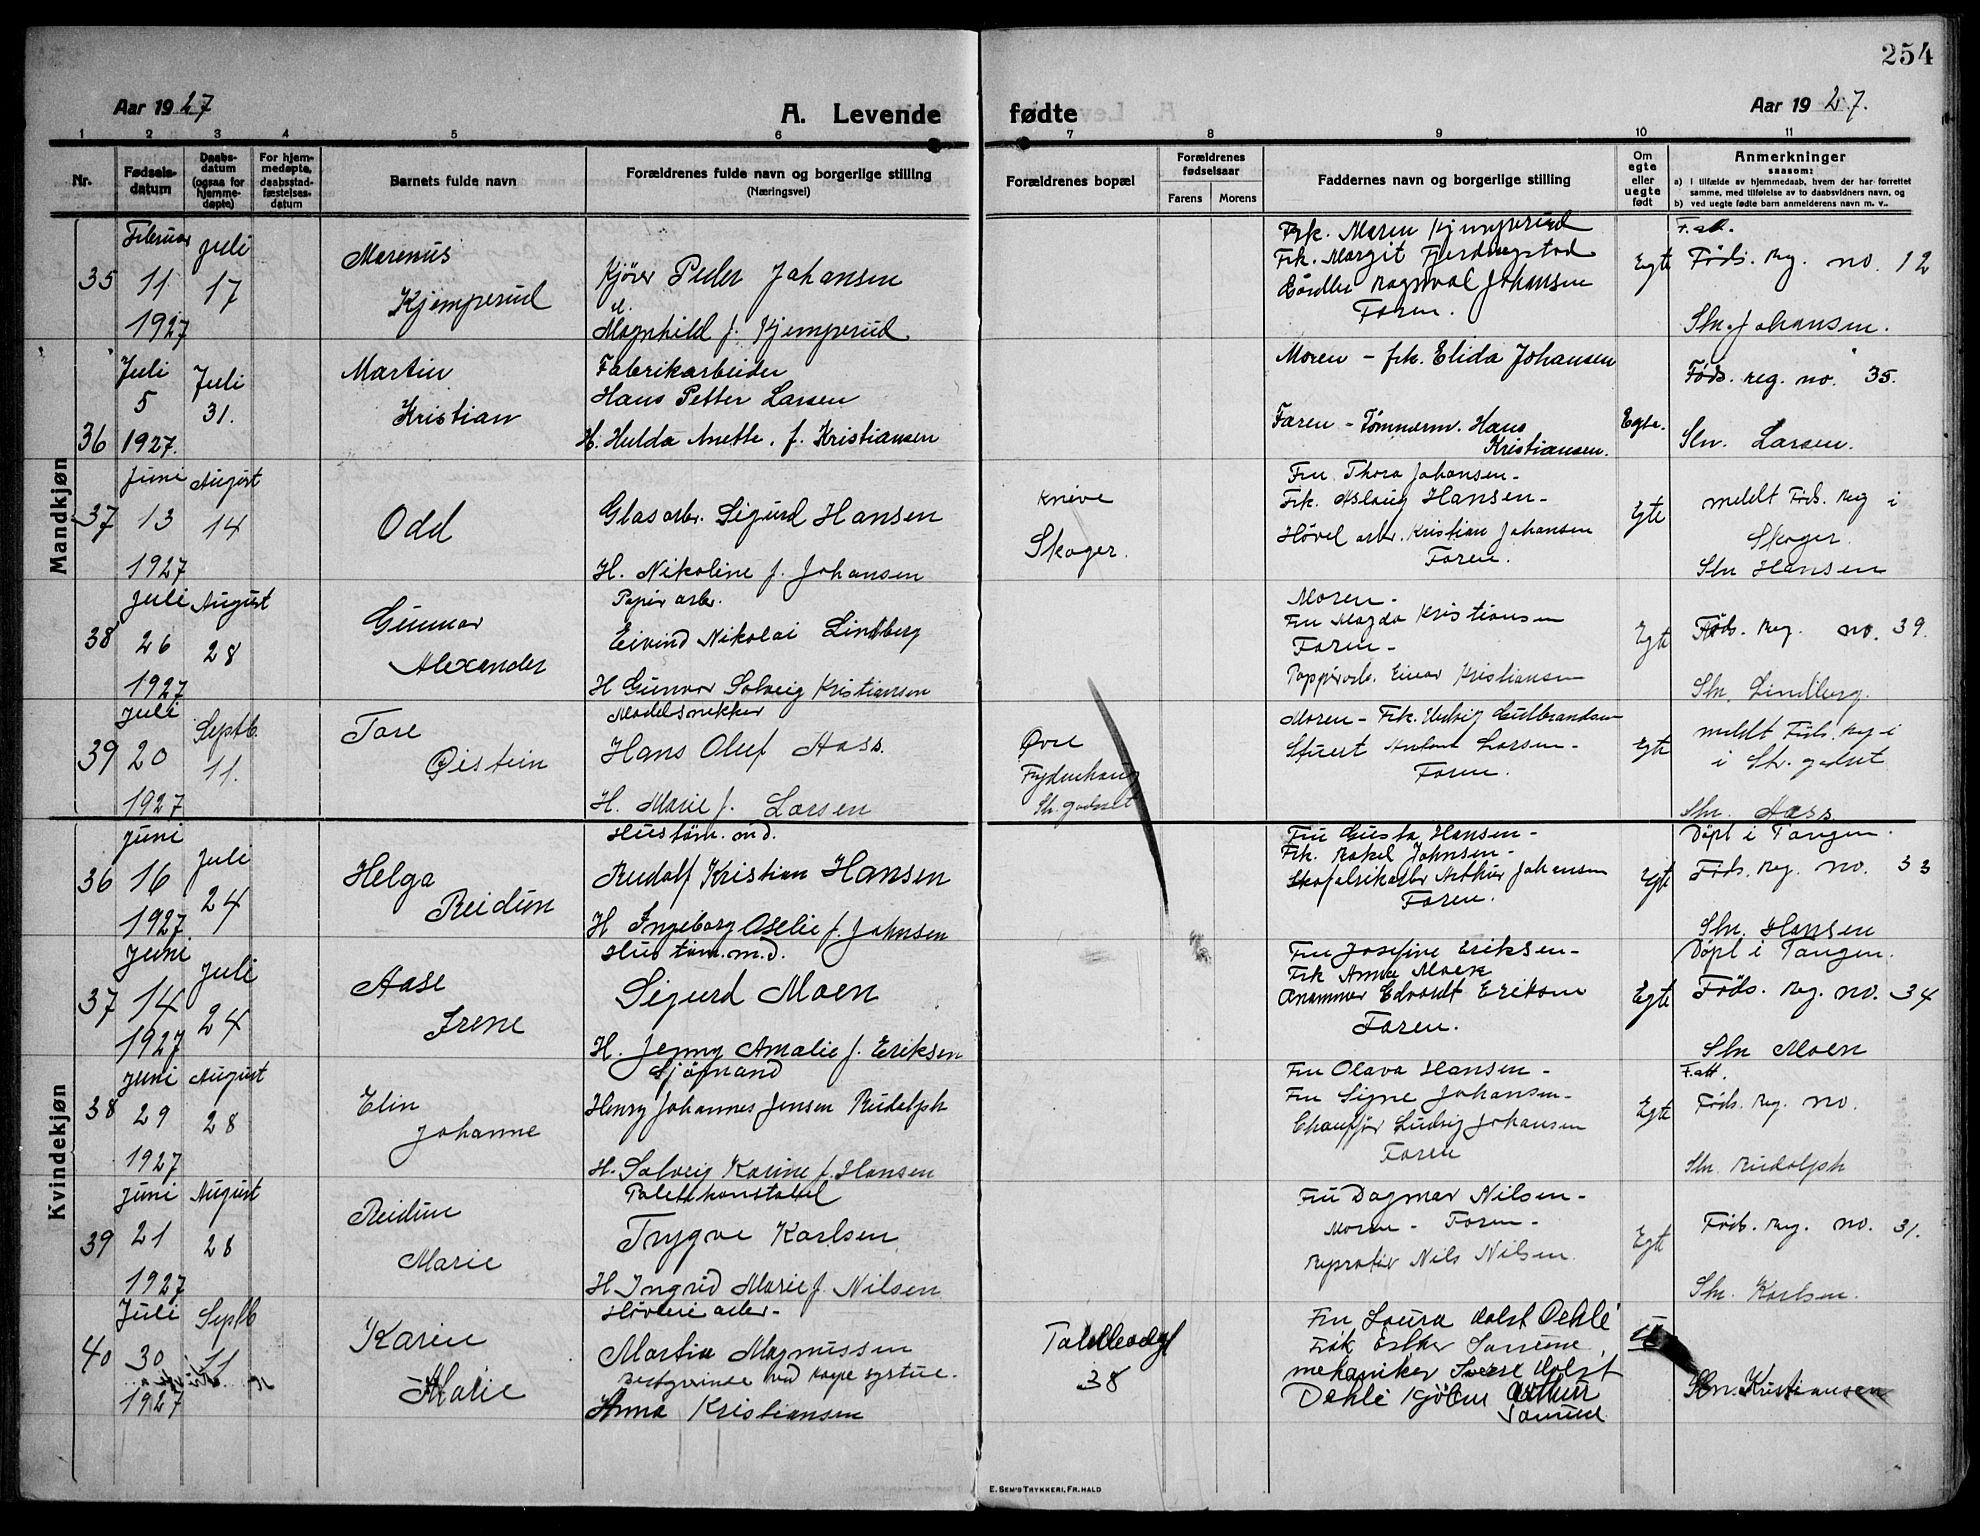 254
Aar 1927
A. Levende fødte
Aar 1927.
1 2 3 4 5 6 7 8 9 10 11
Nr.
Fødsels-
datum
Daabs-
datum
(ogsaa for
hjemme-
døpte)
For hjem-
medøpte,
daabsstad-
fæstelses-
datum
Barnets fulde navn
Forældrenes fulde navn og borgerlige stilling
(Næringsvei)
Forældrenes bopæl
Forældrenes
fødselsaar
Farens Morens
Faddernes navn og borgerlige stilling
Om
egte
eller
uegte
født
Anmerkninger
saasom:
a) i tilfælde av hjemmedaab, hvem der har forrettet
samme, med tilføielse av to daabsvidners navn, og
b) ved uegte fødte barn anmelderens navn m. v..
Mandkjøn
35
Februar
11
1927
Juli
17
Marenus
Kjemperud
Kjører Peder Johansen
Magnhild f. Kjemperud
Frk. Maren Kjemperud
Frk. Margit Fjerdingstad
Ragnval Johansen
Faren.
Egte
F. att.
Føds. Reg. no. 12
Stn. Johansen.
36
Juli
5
1927.
Juli
31.
Martin
Kristian
Fabrikarbeider
Hans Petter Larsen
H. Hulda Anette. f. Kristiansen
Moren - frk. Elida Johansen
Faren - Tømmerm. Hans
Kristiansen.
Egte.
Føds. reg. no. 35.
Stn. Larsen.
37
Juni
13
1927
August
14
Odd
Glasarb. Sigurd Hansen
H. Nikoline f. Johansen
Knive
Skoger.
Fru Thora Johansen-
Frk. Aslaug Hansen-
Høvel arb. Kristian Johansen
Faren.
Egte
meldt Føds. Reg i
Skoger.
Stn Hansen
38
Juli
26
1927
August
28
Gunnar
Alexander
Papir arb.
Eivind Nikolai Lindberg
H Gunvor Solveig Kristiansen
Moren-
Fru Magda Kristiansen
Faren-
Einar Kristiansen
Egte
Føds. Reg. no. 39.
Stn. Lindberg.
39
Juli
20
1927
Septb.
11.
Tore
Øistein
Modelsnekker
Hans Oluf Aass
H. Marie f. Larsen
Øvre
Frydenhaug
Str. godset
Moren - Frk. Hedvig Gulbrandsen
Stuert Anton Larsen-
Faren.
Egte
meldt Føds. Reg i
i Str. godset
Stn. Aass
Kvindekjøn
36
Juni
16
1927
Juli
24
Helga
Reidun
Hustøm. md.
Rudolf Kristian Hansen
H Ingeborg Oselie f. Johnsen
Fru Gusta Hansen-
Frk. Rakel Johnsen-
Skofabrikarbr Arthur Johansen
Faren.
Egte
Døpt i Tangen.
Føds. Reg. no. 33
Stn. Hansen
37
Juni
14
1927
Juli
24
Aase
Irene
Hustøm. m.d.
Sigurd Moen
H. Jenny Amalie f. Eriksen
Fru Josefine Eriksen-
Frk Anna Moen
Edvardt Eriksen
Faren.
Egte
Døpt i Tangen.
Føds. Reg. no. 34
Stn Moen
38
Juni
29
1927
August
28
Elin
Johanne
Sjømand
Henry Johannes Jensen Rudolph
H. Solveig Karine f. Hansen
Fru Olava Hansen -
Fru Signe Johansen-
Chauffør Ludvig Johansen
Faren
Egte
F. att.
Føds. Reg. no.
Stn. Rudolph
39
Juni
21
1927
August
28
Reidun
Marie
Politikonstabel
Trygve Karlsen
H Ingrid Marie f. Nilsen
Fru Dagmar Nilsen-
Moren - Faren-
Nils Nilsen.
Egte
Føds. Reg. no. 31.
Stn. Karlsen.
40
Juli
30
1927
Septb
11
Karin
Marie
Høvleri arb.-
Martin Magnussen
Bestyrerinde ved Kape systue.
Anna Kristiansen
38
Fru Laura Holst Dehle
Frøk Esther
mekaniker Sverre Holst
Dehle Arthur
Stn. Kristiansen
E. Sem's Trykkeri, Fr.hald